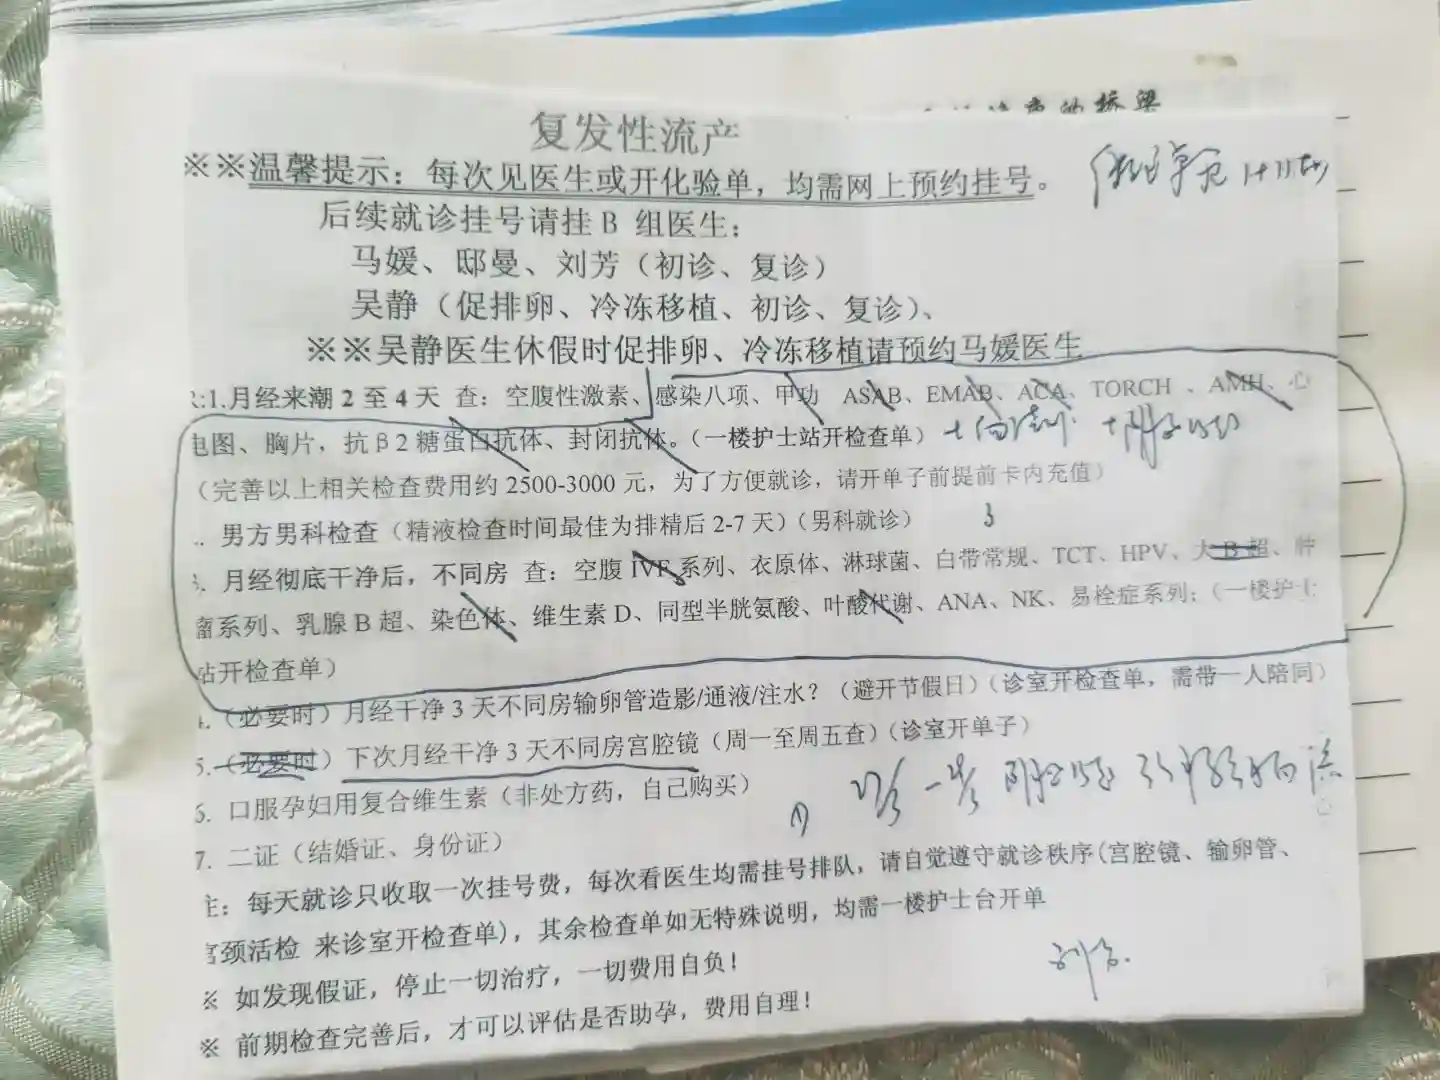 复发性流产
※※温馨提示：每次见医生或开化验单，均需网上预约挂号。
后续就诊挂号请挂B 组医生：
马媛、邸曼、刘芳（初诊、复诊）
吴静（促排卵、冷冻移植、初诊、复诊）、
※※吴静医生休假时促排卵、冷冻移植请预约马媛医生
:1.月经来潮 2 至 4 天 查：空腹性激素、感染八项、甲功 ASAB、EMAB、ACA、TORCH 、AMH、心
电图、胸片，抗β2糖蛋白抗体、封闭抗体。（一楼护士站开检查单）
（完善以上相关检查费用约 2500-3000 元，为了方便就诊，请开单子前提前卡内充值）
. 男方男科检查（精液检查时间最佳为排精后 2-7 天）（男科就诊） 3
. 月经彻底干净后，不同房 查：空腹 IVF 系列、衣原体、淋球菌、白带常规、TCT、HPV、大 B 超、肿
瘤系列、乳腺 B 超、染色体、维生素 D、同型半胱氨酸、叶酸代谢、ANA、NK、易栓症系列；（一楼护士
站开检查单）
.（必要时）月经干净 3 天不同房输卵管造影/通液/注水？（避开节假日）（诊室开检查单，需带一人陪同）
5.（必要时）下次月经干净 3 天不同房宫腔镜（周一至周五查）（诊室开单子）
6. 口服孕妇用复合维生素（非处方药，自己购买）
7. 二证（结婚证、身份证）
注：每天就诊只收取一次挂号费，每次看医生均需挂号排队，请自觉遵守就诊秩序(宫腔镜、输卵管、
宫颈活检 来诊室开检查单)，其余检查单如无特殊说明，均需一楼护士台开单
※ 如发现假证，停止一切治疗，一切费用自负！
※ 前期检查完善后，才可以评估是否助孕，费用自理！